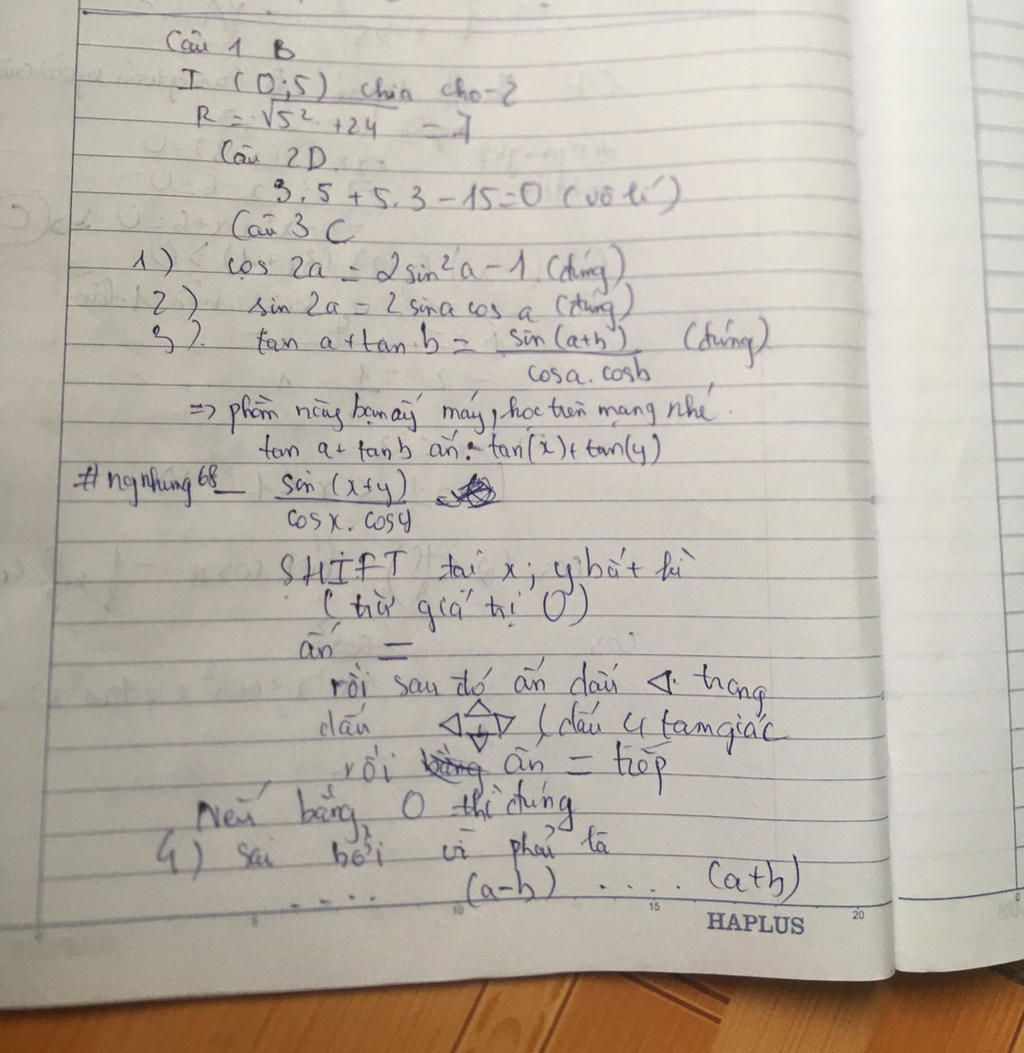 Câu 1 B
I (0;5) chia cho-2
R = √5² +24 = 7
Câu 2D
3.5 + 5.3 - 15 = 0 (vô lí)
Câu 3 C
1) cos 2a = 2 sin²a - 1 (đúng)
2) sin 2a = 2 sin a cos a (đúng)
3) tan a + tan b = sin (a+b) (đúng)
cos a . cos b
=> phần này bạn máy, học trên mạng nhé.
tan a + tan b ấn : tan(x) + tan(y)
#ngnhung68_ sin (x+y)
cos x . cos y
SHIFT tại x; y bất kì
(trừ giá trị 0)
ấn =
rồi sau đó ấn dấu ◁ trong
dấu ◁△▽▷ (dấu 4 tam giác
rồi ấn = tiếp
Nếu bằng 0 thì đúng
4) sai bởi vì phải là
..... (a-b) ..... (a+b)
10 15 20
HAPLUS